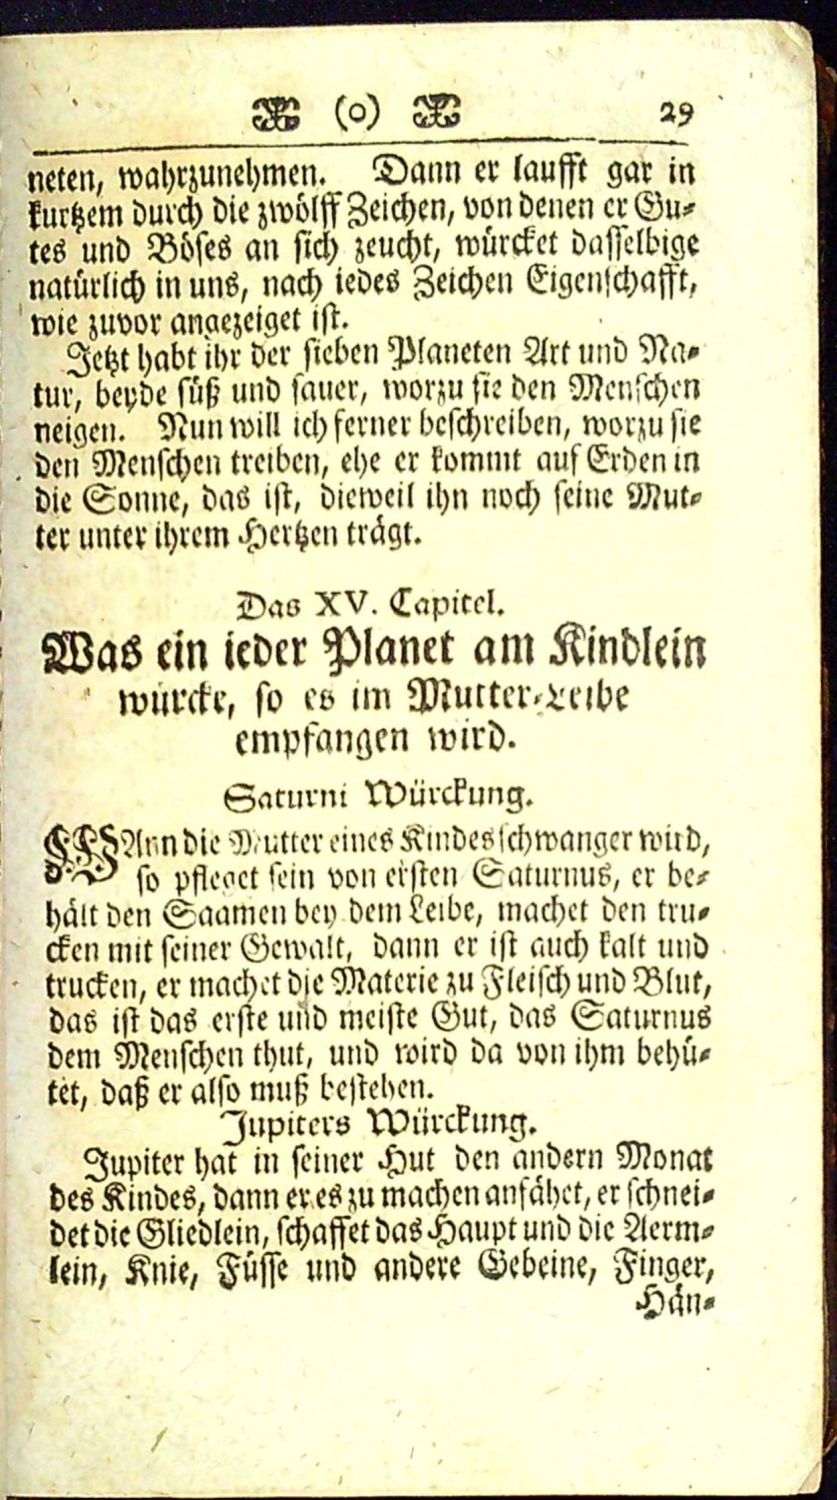 (o) 29
neten, wahrzunehmen. Dann er laufft gar in
kurtzem durch die zwölff Zeichen, von denen er Gu-
tes und Böses an sich zeucht, würcket dasselbige
natürlich in uns, nach iedes Zeichen Eigenschafft,
wie zuvor angezeiget ist.
Jetzt habt ihr der sieben Planeten Art und Na-
tur, beyde süß und sauer, worzu sie den Menschen
neigen. Nun will ich ferner beschreiben, worzu sie
den Menschen treiben, ehe er kommt auf Erden in
die Sonne, das ist, dieweil ihn noch seine Mut-
ter unter ihrem Hertzen trägt.
Das XV. Capitel.
Was ein ieder Planet am Kindlein
würcke, so es im Mutter-Leibe
empfangen wird.
Saturni Würckung.
WAnn die Mutter eines Kindes schwanger wird,
so pfleget sein von ersten Saturnus, er be-
hält den Saamen bey dem Leibe, machet den tru-
cken mit seiner Gewalt, dann er ist auch kalt und
trucken, er machet die Materie zu Fleisch und Blut,
das ist das erste und meiste Gut, das Saturnus
dem Menschen thut, und wird da von ihm behü-
tet, daß er also muß bestehen.
Jupiters Würckung.
Jupiter hat in seiner Hut den andern Monat
des Kindes, dann er es zu machen anfähet, er schnei-
det die Gliedlein, schaffet das Haupt und die Aerm-
lein, Knie, Füsse und andere Gebeine, Finger,
Hän-